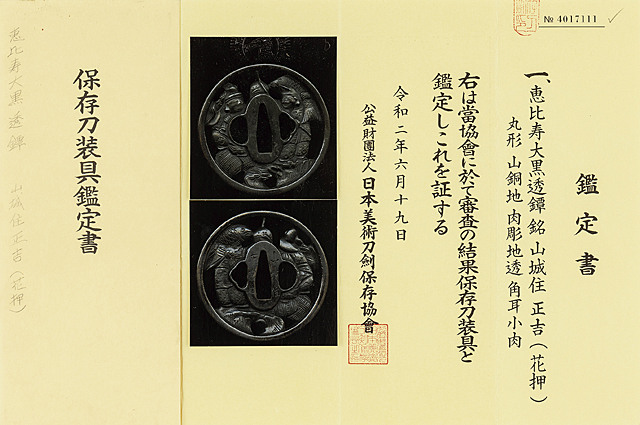 № 4017111
鑑定書
一、恵比寿大黒透鐔 銘 山城住 正吉(花押)
丸形 山銅地 肉彫地透 角耳小肉
右は當協會に於て審査の結果保存刀装具と
鑑定しこれを証する
令和二年六月十九日
公益財團法人 日本美術刀劍保存協會
保存刀装具鑑定書
恵比寿大黒透鐔 山城住正吉(花押)